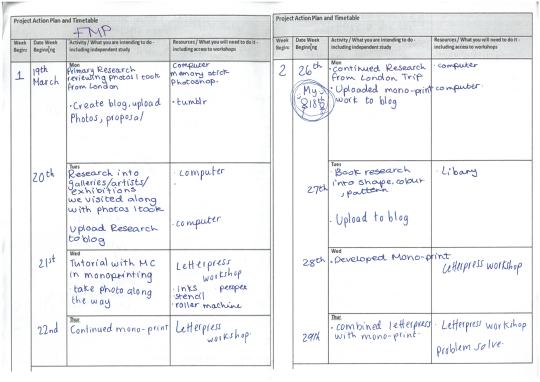 Project Action Plan and Timetable
FMP
Week Begins:
Date Week Beginning
Activity / What you are intending to do - including independent study
Resources / What you will need to do it - including access to workshops
1
19th March
Mon
Primary Research
reviewing photos I took
from London
• Create blog, upload
Photos, proposal
Computer
memory stick
Photoshop.
• tumblr
20th
Tues
Research into
galleries/artists/
exhibitions
we visited along
with photos I took
Upload Research
to blog
• computer
• computer
21st
Wed
Tutorial with MC
in monoprinting
• take photo along
the way
Letterpress
workshop
• inks
stencil
• roller machine
22nd
Thur
Continued mono-print
Letterpress
workshop.
Project Action Plan and Timetable
Week Begins:
Date Week Beginning
Activity / What you are intending to do - including independent study
Resources / What you will need to do it - including access to workshops
2
26th
My
18th
Mon
• Continued Research
from London Trip
• Uploaded mono-print
work to blog
• computer
computer.
27th
Tues
• Book research
into shape, colour
, pattern
• Upload to blog
• Libary
28th
Wed
• Developed Mono-print
Letterpress workshop
29th
Thur
• combined letterpress
with mono-print.
• Letterpress workshop
problem solve.